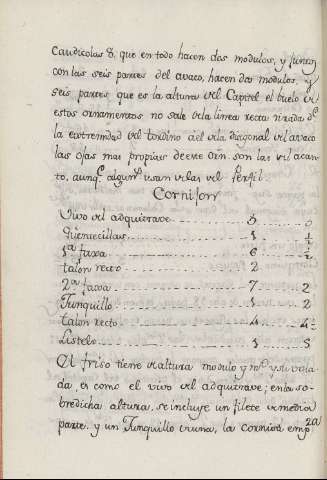 Caulicolas 8, que en todo hacen dos modulos, y juntos
con las seis partes del avaco, hacen dos modulos, y
seis partes que es la altura del Capitel el buelo de
estos ornamentos no sale de la linea recta tirada de
la extremidad del tondino á el de la diagonal del avaco
las ojas mas propias de este Orn. son las del acan-
to, aunq.e algunos usan de las del Perfil.
Cornison
Vivo del adquitrave 5 0
quentecillas 1 ½
1.a faxa 6 ½
talon recto 2
2.a faxa 7 2
Junquillo 1 2
talon recto 4 4½
Listelo 1 5
El friso tiene de altura modulo y m.o y su vola
da, es como el vivo del adquitrave; en la so-
bredicha altura, se incluye un filete de media
parte y un Junquillo de una, la cornisa emp